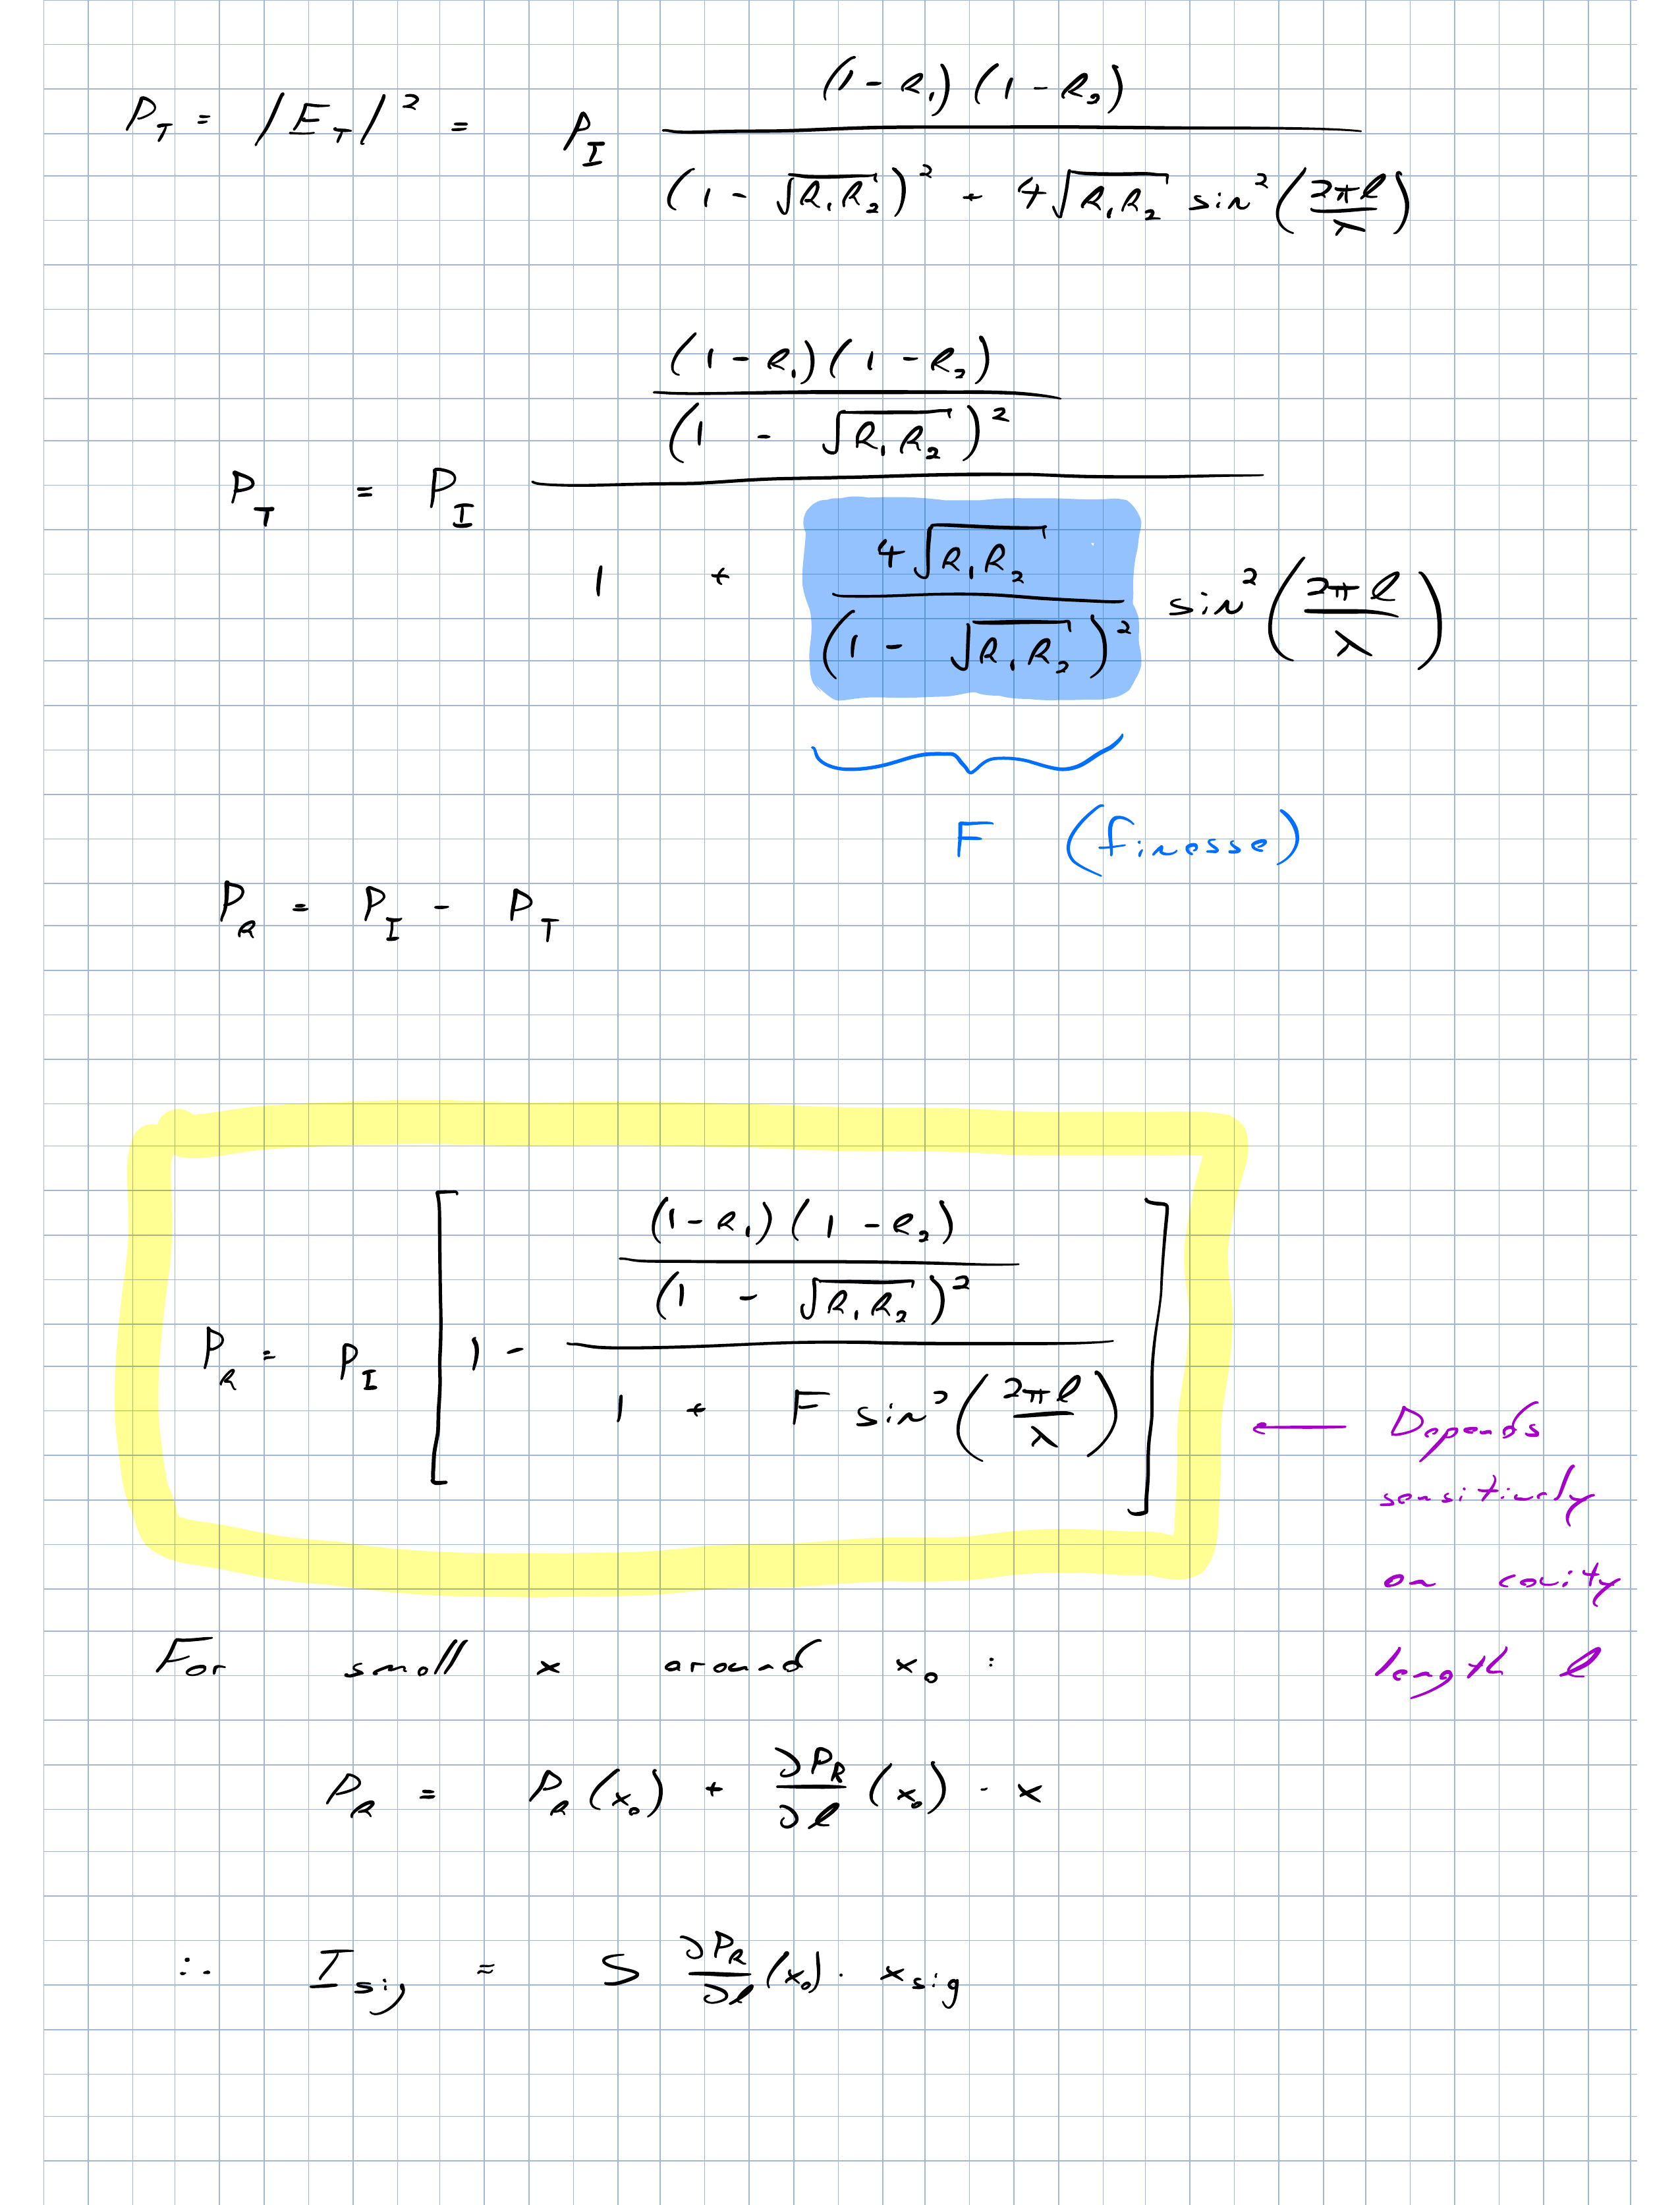 P_T = |E_T|² = P_I \frac{(1 - R_1)(1 - R_2)}{(1 - \sqrt{R_1 R_2})^2 + 4\sqrt{R_1 R_2} \sin^2(\frac{2πℓ}{λ})}
P_T = P_I \frac{\frac{(1 - R_1)(1 - R_2)}{(1 - \sqrt{R_1 R_2})^2}}{1 + \frac{4\sqrt{R_1 R_2}}{(1 - \sqrt{R_1 R_2})^2} \sin^2(\frac{2πℓ}{λ})}
F (finesse)
P_R = P_I - P_T
P_R = P_I [1 - \frac{\frac{(1 - R_1)(1 - R_2)}{(1 - \sqrt{R_1 R_2})^2}}{1 + F \sin^2(\frac{2πℓ}{λ})}]
← Depends
sensitively
on cavity
length ℓ
For small x around x_0 :
P_R = P_R(x_0) + \frac{∂P_R}{∂ℓ}(x_0) · x
∴ I_{sig} = S \frac{∂P_R}{∂ℓ}(x_0) · x_{sig}